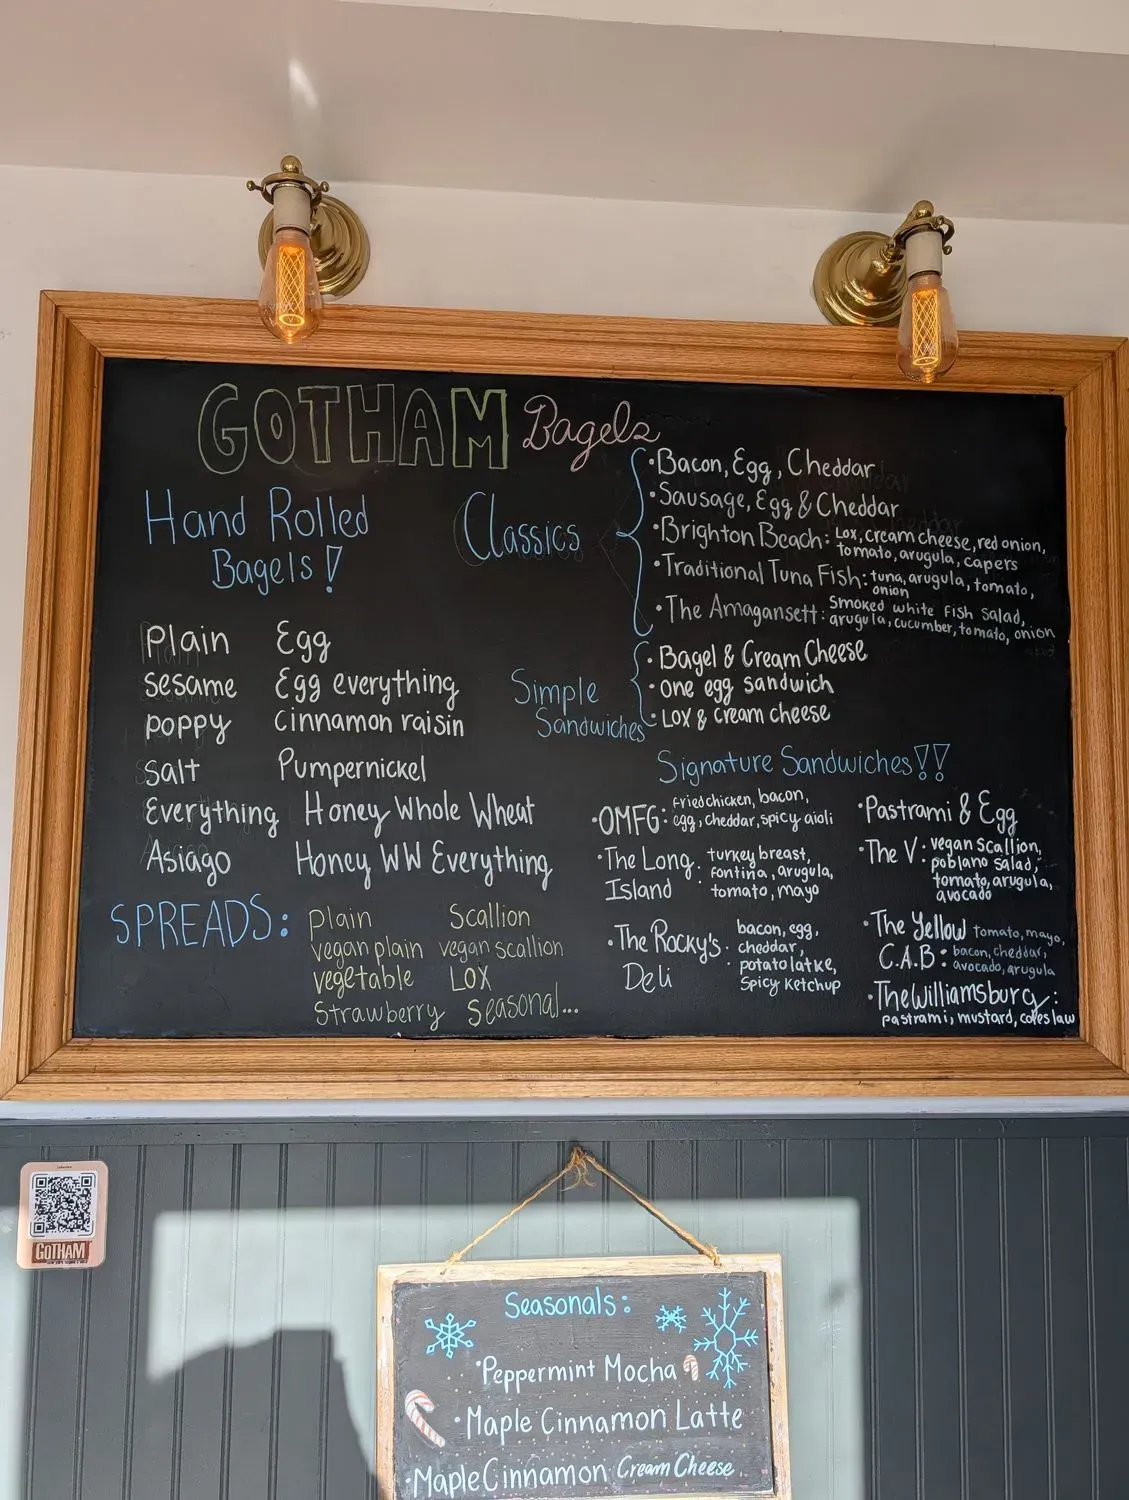 GOTHAM Bagels
Hand Rolled
Bagels!
Plain Egg
Sesame Egg everything
poppy Cinnamon raisin
Salt Pumpernickel
Everything Honey Whole Wheat
Asiago Honey WW Everything
SPREADS:
Plain Scallion
vegan plain vegan scallion
vegetable LOX
Strawberry Seasonal...
Classics
•Bacon, Egg, Cheddar
•Sausage, Egg & Cheddar
•Brighton Beach: Lox, cream cheese, red onion,
tomato, arugula, capers
•Traditional Tuna Fish: tuna, arugula, tomato,
onion
•The Amagansett: Smoked white fish salad,
arugula, cucumber, tomato, onion
Simple
Sandwiches
•Bagel & Cream Cheese
•One egg sandwich
•Lox & cream cheese
Signature Sandwiches!!
•OMFG: fried chicken, bacon,
egg, cheddar, spicy aioli
•The Long Island: turkey breast,
fontina, arugula,
tomato, mayo
•The Rocky's Deli: bacon, egg,
cheddar,
potato latke,
Spicy Ketchup
•Pastrami & Egg
•The V: vegan scallion,
poblano salad,
tomato, arugula,
avocado
•The Yellow C.A.B: tomato, mayo,
bacon, cheddar,
avocado, arugula
•The Williamsburg:
pastrami, mustard, coleslaw
GOTHAM
Seasonals:
•Peppermint Mocha
•Maple Cinnamon Latte
•Maple Cinnamon Cream Cheese